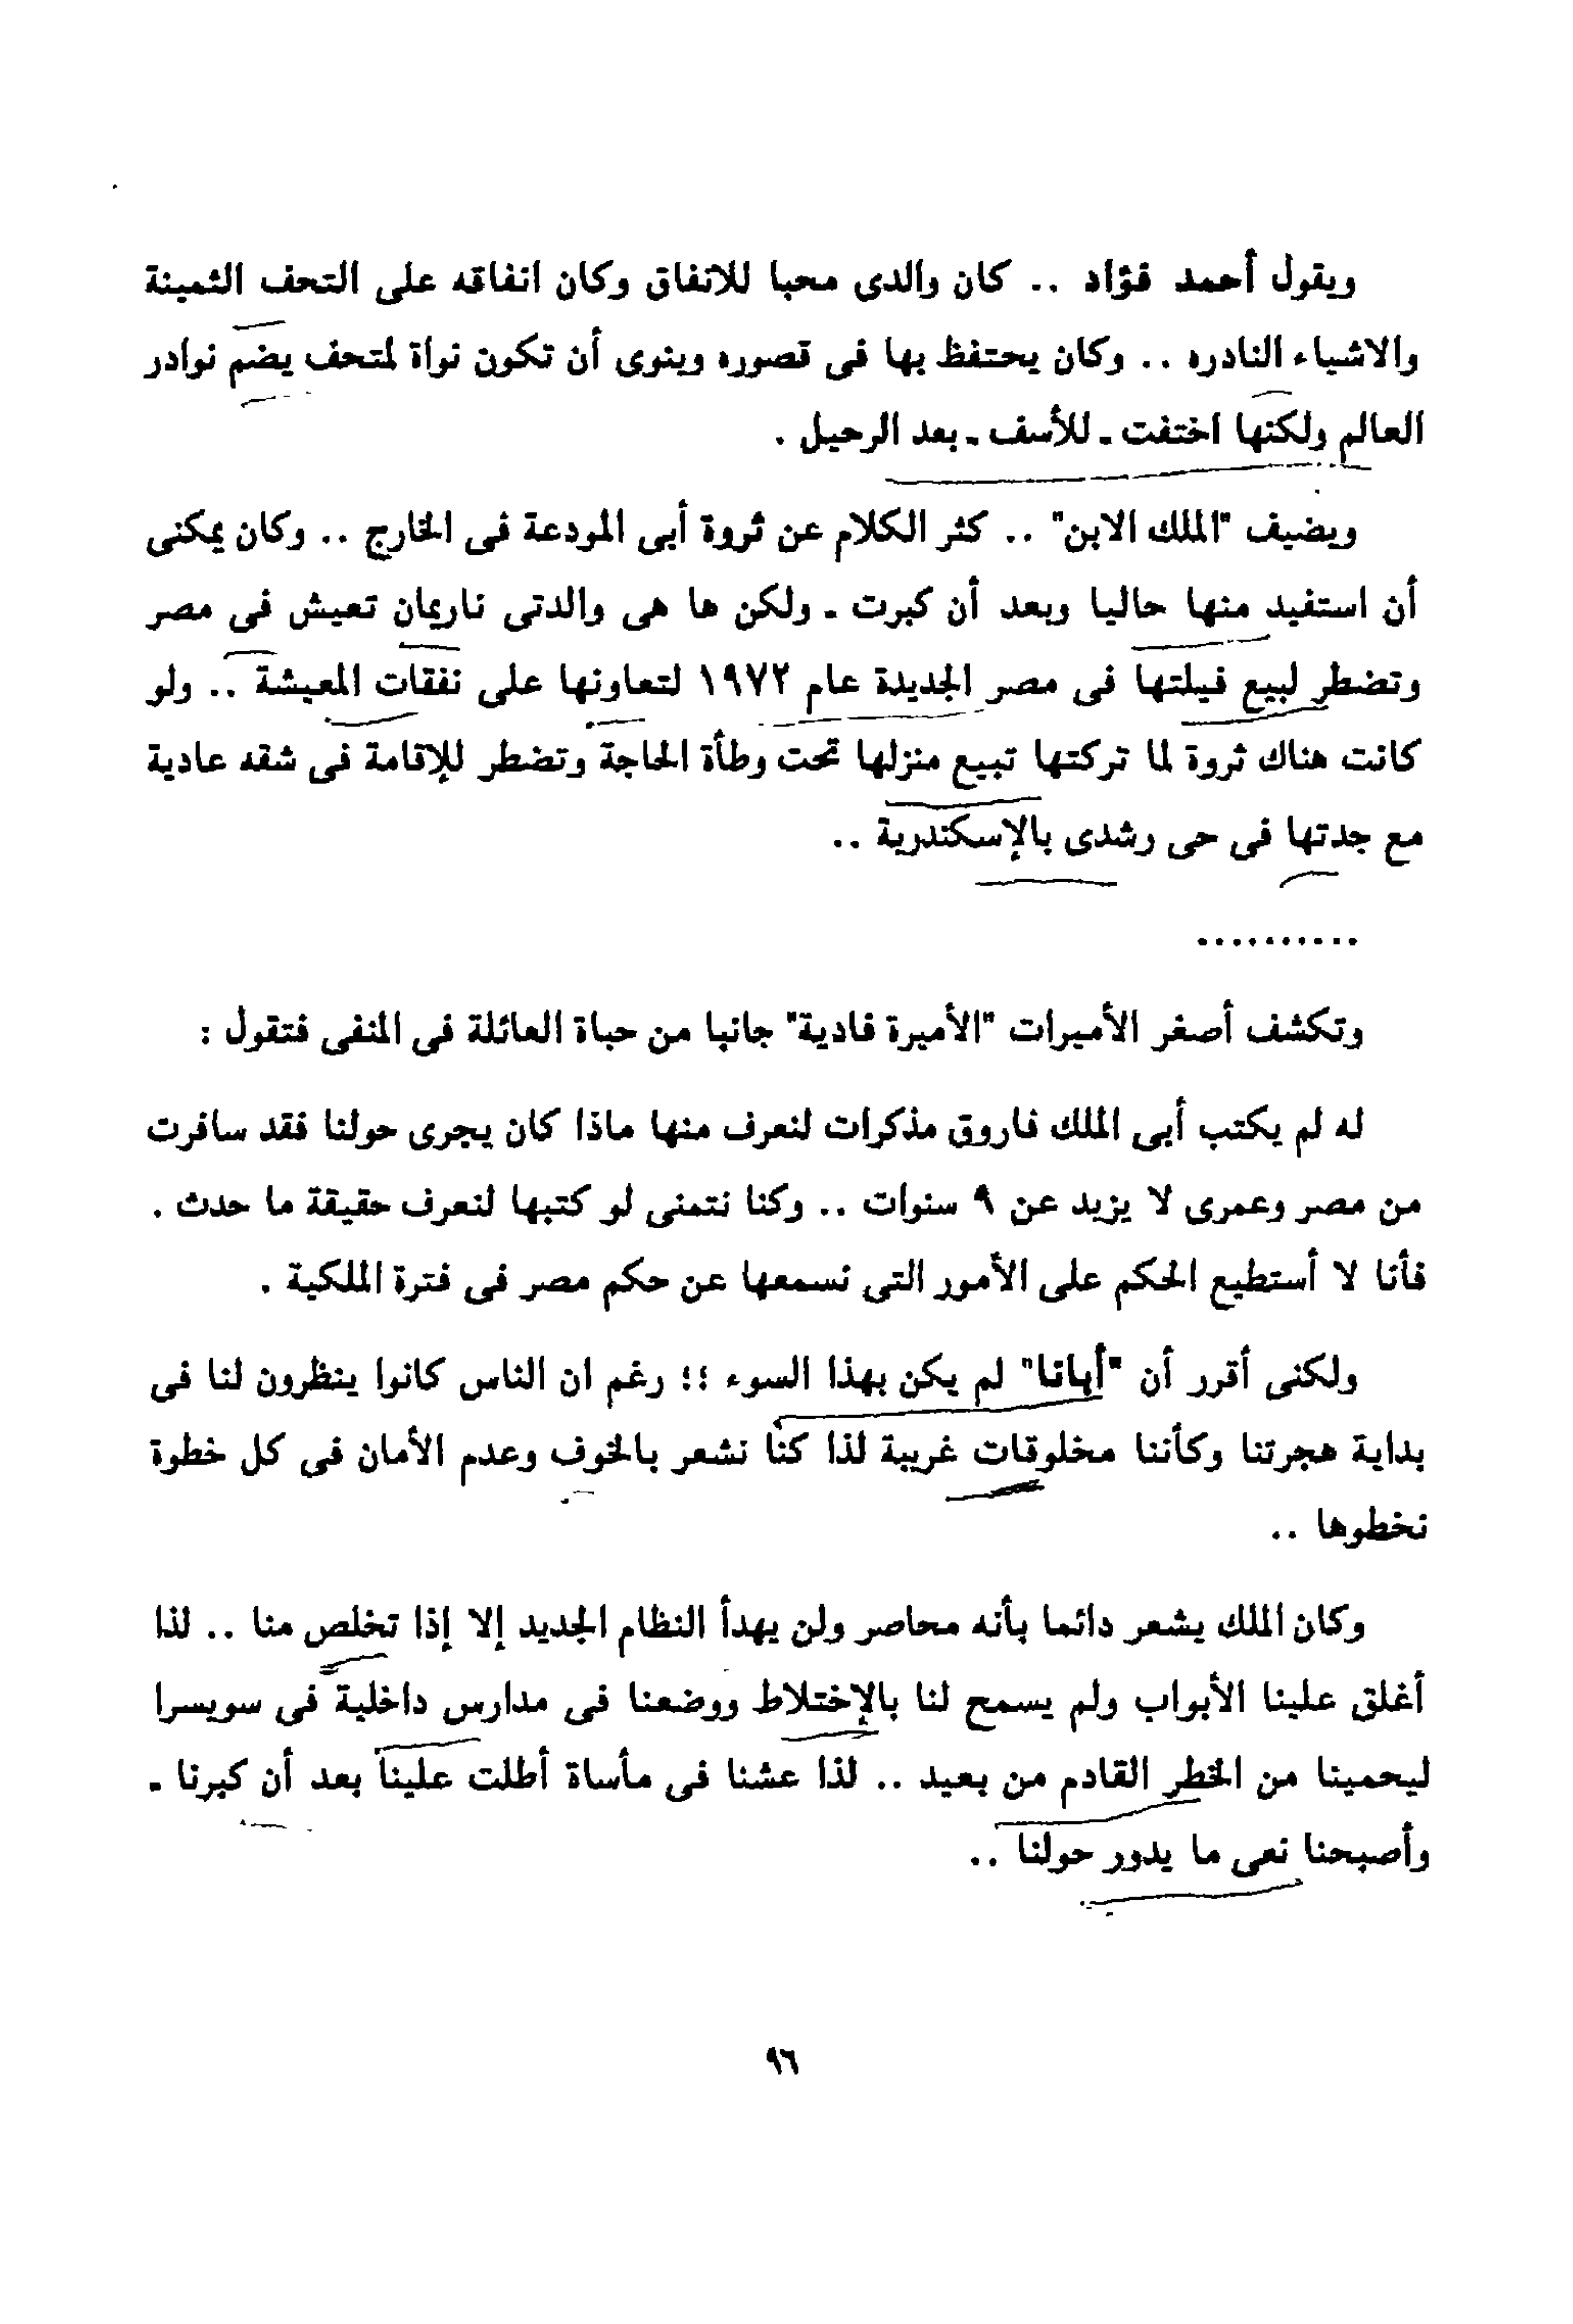 ويقول أحمد فؤاد .. كان والدى محبا للانفاق وكان انفاقه على التحف الثمينة
والاشياء النادره .. وكان يحتفظ بها فى قصوره وينوى أن تكون نواة لمتحف يضم نوادر
العالم ولكنها اختفت ـ للأسف ـ بعد الرحيل .
ويضيف "الملك الابن" .. كثر الكلام عن ثروة أبى المودعة فى الخارج .. وكان يمكنى
أن استفيد منها حاليا وبعد أن كبرت ـ ولكن ها هى والدتى ناريمان تعيش فى مصر
وتضطر لبيع فيلتها فى مصر الجديدة عام ١٩٧٢ لتعاونها على نفقات المعيشة .. ولو
كانت هناك ثروة لما تركتها تبيع منزلها تحت وطأة الحاجة وتضطر للإقامة فى شقه عادية
مع جدتها فى حى رشدى بالإسكندرية ..
..........
وتكشف أصغر الأميرات "الأميرة فادية" جانبا من حياة العائلة فى المنفى فتقول :
له لم يكتب أبى الملك فاروق مذكرات لنعرف منها ماذا كان يجرى حولنا فقد سافرت
من مصر وعمرى لا يزيد عن ٩ سنوات .. وكنا نتمنى لو كتبها لنعرف حقيقة ما حدث .
فأنا لا أستطيع الحكم على الأمور التى نسمعها عن حكم مصر فى فترة الملكية .
ولكنى أقرر أن "أبانا" لم يكن بهذا السوء ؛؛ رغم ان الناس كانوا ينظرون لنا فى
بداية هجرتنا وكأننا مخلوقات غريبة لذا كنا نشعر بالخوف وعدم الأمان فى كل خطوة
نخطوها ..
وكان الملك يشعر دائما بأنه محاصر ولن يهدأ النظام الجديد إلا إذا تخلص منا .. لذا
أغلق علينا الأبواب ولم يسمح لنا بالإختلاط ووضعنا فى مدارس داخلية فى سويسرا
ليحمينا من الخطر القادم من بعيد .. لذا عشنا فى مأساة أطلت علينا بعد أن كبرنا ـ
وأصبحنا نعى ما يدور حولنا ..
٩٦